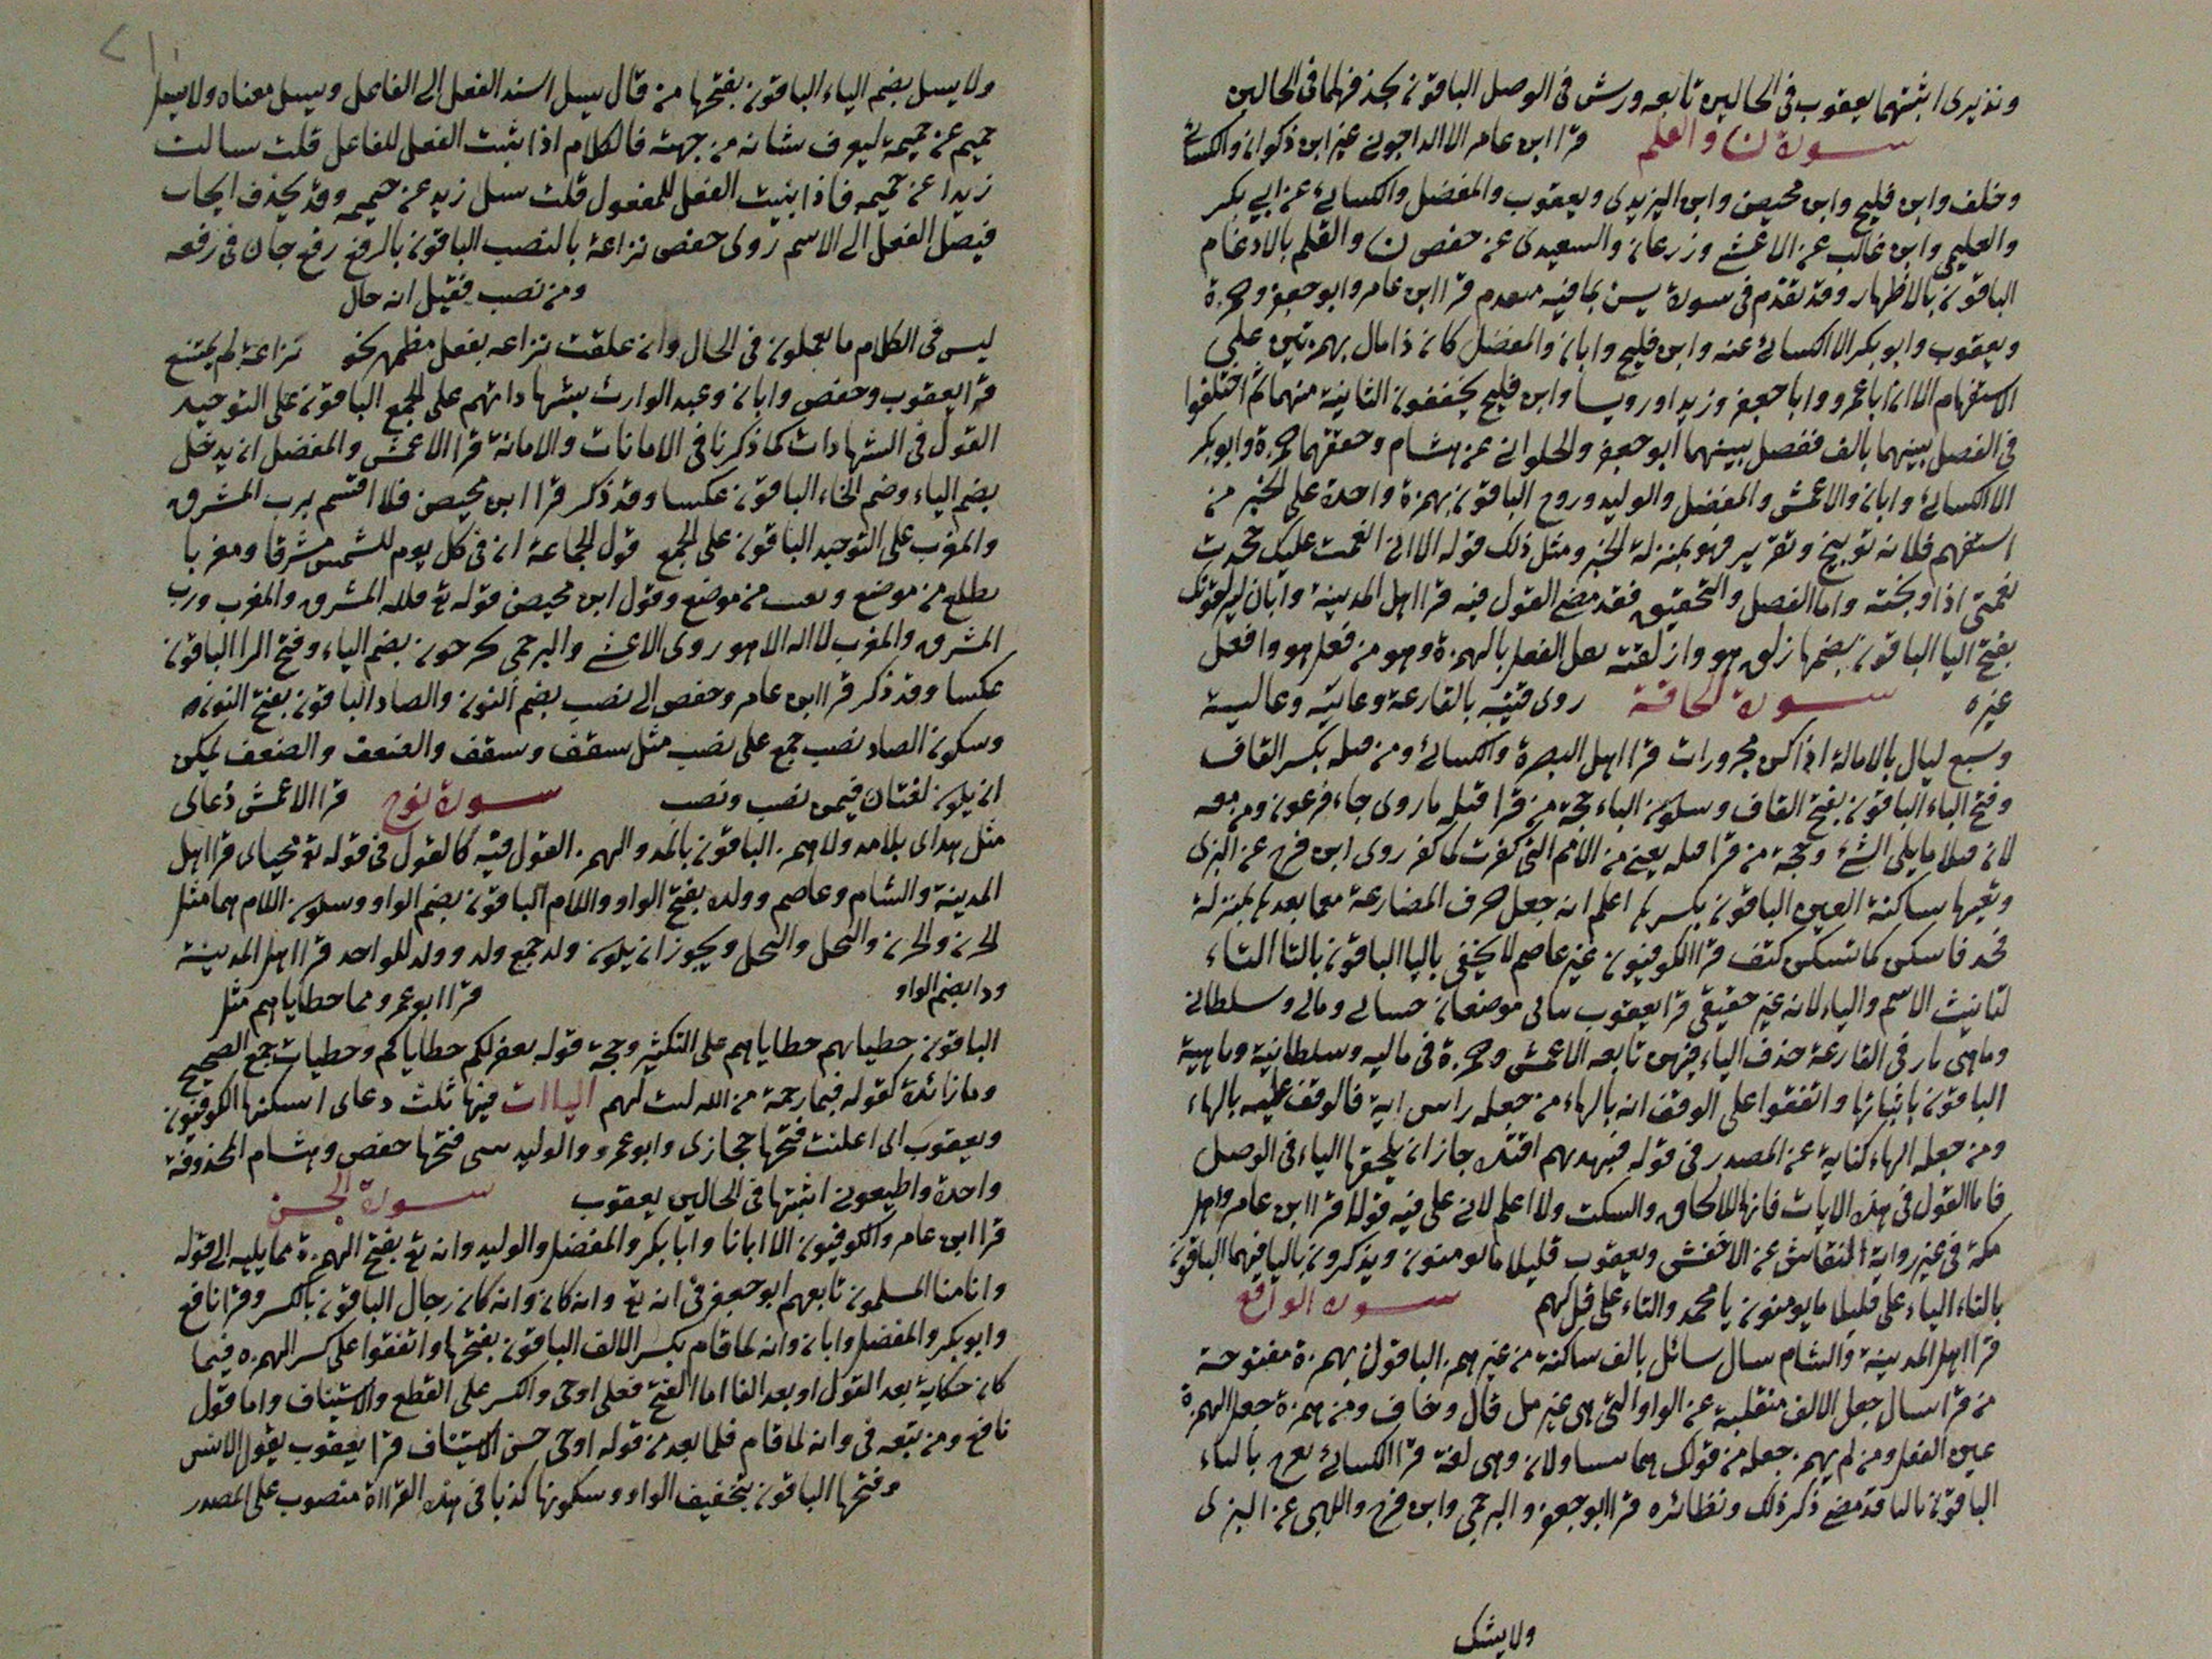 ونذيرى اثبتهما يعقوب فى الحالين تابعه ورش فى الوصل الباقون بحذفهما فى الحالين
سورة ن والقلم قرا ابن عامر الا الداجونى عن ابن ذكوان والكسائى
وخلف وابن فليح وابن محيصن وابن اليزيدى ويعقوب والمفضل والكسائى عن ابى بكر
والعليمى وابن غالب عن الاعشى وزرعان والسعيدى عن حفص ن والقلم بالادغام
الباقون بالاظهار وقد تقدم فى سورة يس بما فيه قرا ابن عامر وابو جعفر وحمزة
ويعقوب وابو بكر الا الكسائى عنه وابن فليح وابان والمفضل كان ذا مال بهمزتين على
الاستفهام الا ان ابا عمرو وابا جعفر وزيدا ورويسا وابن فليح يخففون الثانية منهما ثم اختلفوا
فى الفصل بينهما بالف ففصل بينهما ابو جعفر والحلوانى عن هشام وحققهما حمزة وابو بكر
الا الكسائى وابان والاعمش والمفضل والوليد وروح الباقون بهمزة واحدة على الخبر من
استفهم فلانه توبيخ وتقرير فهو بمنزلة الخبر ومثل ذلك قوله الا انى انعمت عليك فجحدت
نعمتى اذا وبخته واما الفصل والتحقيق فقد مضى القول فيه قرا اهل المدينة وابان ليزلقونك
بفتح اليا الباقون بضمها زلق هو وازلقته نقل الفعل بالهمزة وهو من فعل هو وافعل
غيره سورة الحاقة روى قتيبه بالقارعة وعاتية وعالية
وسبع ليال بالامالة اذا كن مجرورات قرا اهل البصرة والكسائى ومن قبله بكسر القاف
وفتح الباء الباقون بفتح القاف وسكون الباء حجة من قرا قبله ما روى جاء فرعون ومن معه
لان قبلا ما يلى الشئ وحجة من قرا قبله يعنى من الامم التى كفرت كما كفر روى ابن فرح عن البزى
وتعيها ساكنة العين الباقون بكسرها اعلم انه جعل حرف المضارعة مع ما بعدها بمنزلة
فخذ فاسكن كما تسكن كتف قرا الكوفيون غير عاصم لا يخفى باليا الباقون بالتا التاء
لتانيث الاسم والياء لانه غير حقيقى قرا يعقوب موضعان حسابى ومالى وسلطانى
وماهى نار فى القارعة حذف الياء فيهن تابعه الاعمش وحمزة فى ماليه وسلطانية وماهية
الباقون باثباتها واتفقوا على الوقف انه بالهاء من جعله راس اية فالوقف عليه بالهاء
ومن جعله الهاء كناية عن المصدر فى قوله فبهديهم اقتده جاز ان يلحقها الياء فى الوصل
فاما القول فى هذه الايات فانها للالحاق والسكت ولا اعلم لانى على فيه قولا قرا ابن عامر واهل
مكة فى غير رواية النقاش عن الاخفش ويعقوب قليلا ما يومنون ويذكرون باليا فيهما الباقون
بالتاء الياء على قليلا ما يومنون يا محمد والتاء على قل لهم سورة الواقع
قرا اهل المدينة والشام سال سائل بالف ساكنة من غير همز الباقون بهمزة مفتوحة
من قرا سال جعل الالف منقلبة عن الواو التى هى عين مثل قال وخاف ومن همزة جعل الهمزة
عين الفعل ومن لم يهمز جعله من قولك هما يتساولان وهى لغة قرا الكسائى يعرج بالياء
الباقون بالتا قد مضى ذكر ذلك ونظائره قرا ابو جعفر والبرجمى وابن فرح واللهبى عن البزى
ولا يسئل
ولا يسل بضم الياء الباقون بفتحها من قال يسل اسند الفعل الى الفاعل ويسل معناه ولا يسل
حميم عن حميمه ليعرف شانه من جهته فالكلام اذا ثبت الفعل للفاعل قلت سالت
زيدا عن حميمه فاذا بنيت الفعل للمفعول قلت سل زيد عن حميمه وقد يحذف الجار
فيصل الفعل الى الاسم روى حفص نزاعة بالنصب الباقون بالرفع رفع جان فى رفعه
ومن نصب فقيل انه حال
ليس فى الكلام ما يعملون فى الحال وان علقت نزاعه بفعل مظمر نحو نزاعة لم يمتنع
قرا يعقوب وحفص وابان وعبد الوارث بشهاداتهم على الجمع الباقون على التوحيد
القول فى الشهادات كما ذكرنا فى الامانات والامانة قرا الاعمش والمفضل ان يدخل
بضم الياء وضم الخاء الباقون عكسا وقد ذكر قرا ابن محيصن فلا اقسم برب المشرق
والمغرب على التوحيد الباقون على الجمع قول الجماعة ان فى كل يوم للشمس مشرقا ومغربا
تطلع من موضع وتغيب من موضع وقول ابن محيصن قوله تع فلله المشرق والمغرب ورب
المشرق والمغرب لا اله الا هو روى الاعشى والبرجمى يخرجون بضم الياء وفتح الرا الباقون
عكسا وقد ذكر قرا ابن عامر وحفص الى نصب بضم النون والصاد الباقون بفتح النون
وسكون الصاد نصب جمع على نصب مثل سقف وسقف والضعف والضعف يمكن
ان يكون لغتان فيهن نصب ونصب سورة نوح قرا الاعمش دعاى
مثل هداى بلا مد ولا همز الباقون بالمد والهمز القول فيه كالقول فى قوله تع محياى قرا اهل
المدينة والشام وعاصم وولده بفتح الواو واللام الباقون بضم الواو وسكون اللام هما مثل
الحزن والحزن والبخل والبخل ويجوز ان يكون ولد جمع ولد وولد للواحد قرا اهل المدينة
ودا بضم الواو قرا ابو عمرو مما خطاياهم مثل
الباقون خطياتهم خطاياهم على التكثير وحجة قوله يغفر لكم خطاياكم وخطيات جمع الصحيح
وما زائدة كقوله فبما رحمة من الله لنت لهم الياات فيها ثلث دعاى اسكنها الكوفيون
ويعقوب انى اعلنت فتحها حجازى وابو عمرو والوليد بيتى فتحها حفص وهشام المحذوفة
واحدة واطيعونى اثبتها فى الحالين يعقوب سورة الجن
قرا ابن عامر والكوفيون الا ابانا وابا بكر والمفضل والوليد وانه تع بفتح الهمزة مما يليه الى قوله
وانا منا المسلمون تابعهم ابو جعفر فى انه تع وانه كان وانه كان رجال الباقون بالكسر وقرا نافع
وابو بكر والمفضل وابان وانه لما قام بكسر الالف الباقون بفتحها واتفقوا على كسر الهمزه فيما
كان حكاية بعد القول او بعد الفا اما الفتح فعلى اوحى والكسر على القطع والاستيناف واما قول
نافع ومن تبعه فى وانه لما قام فلما بعد من قوله اوحى حسن الاستيناف قرا يعقوب يقول الانس
وفتحها الباقون بتخفيف الواو وسكونها كذبا فى هذه القراءة منصوب على المصدر